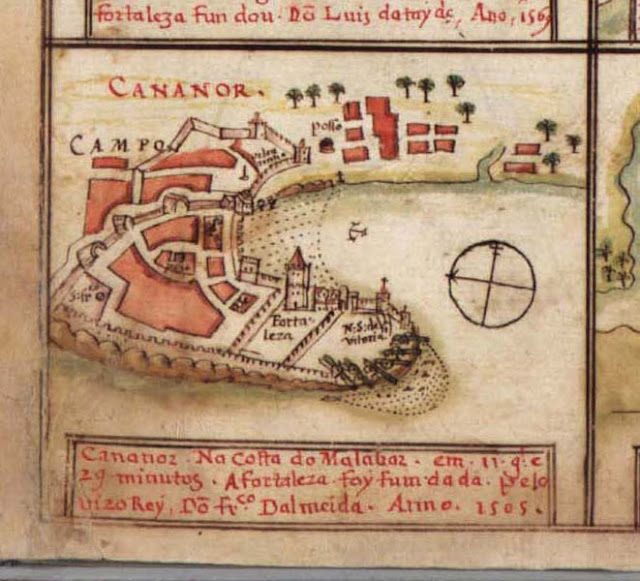 fortaleza fundou. Dõ Luis datayde, Ano, 1569
CANANOR.
CAMPO
posso
S. frco
Forta-
leza
N. S. da
Vitoria
Cananor. Na Costa do Malabar. em. 11. g. e
29 minutos. A fortaleza foy fumdada. pelo
vizo Rey, Dõ frco Dalmeida. Anno. 1505.